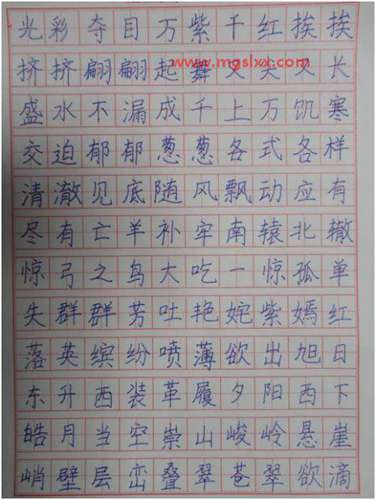 光彩夺目万紫千红挨挨
www.mgslxx.com
挤挤翩翩起舞又尖又长
盛水不漏成千上万饥寒
交迫郁郁葱葱各式各样
清澈见底随风飘动应有
尽有亡羊补牢南辕北辙
惊弓之鸟大吃一惊孤单
失群群芳吐艳姹紫嫣红
落英缤纷喷薄欲出旭日
东升西装革履夕阳西下
皓月当空崇山峻岭悬崖
峭壁层峦叠翠苍翠欲滴